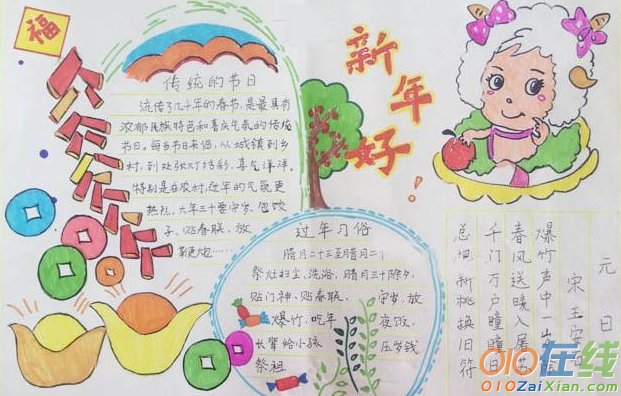 福
新年好!
传统的节日
流传了几千年的春节,是最具有
浓郁民族特色和喜庆气氛的传统
节日。每当节日来临,从城镇到乡
村,到处张灯结彩,喜气洋洋。
特别是在农村,过年的气氛更
热烈。大年三十要守岁、包饺
子、贴春联、放
过年习俗
腊月二十三至腊月二
祭灶扫尘、洗浴、腊月三十除夕
贴门神、贴春联、 守岁、放
爆竹、吃年 夜饭、
长辈给小孩 压岁钱
祭祖
元日
宋 王安
爆竹声中一
春风送暖入屠
千门万户曈曈日
总把新桃换旧符
010在线
010ZaiXian.com